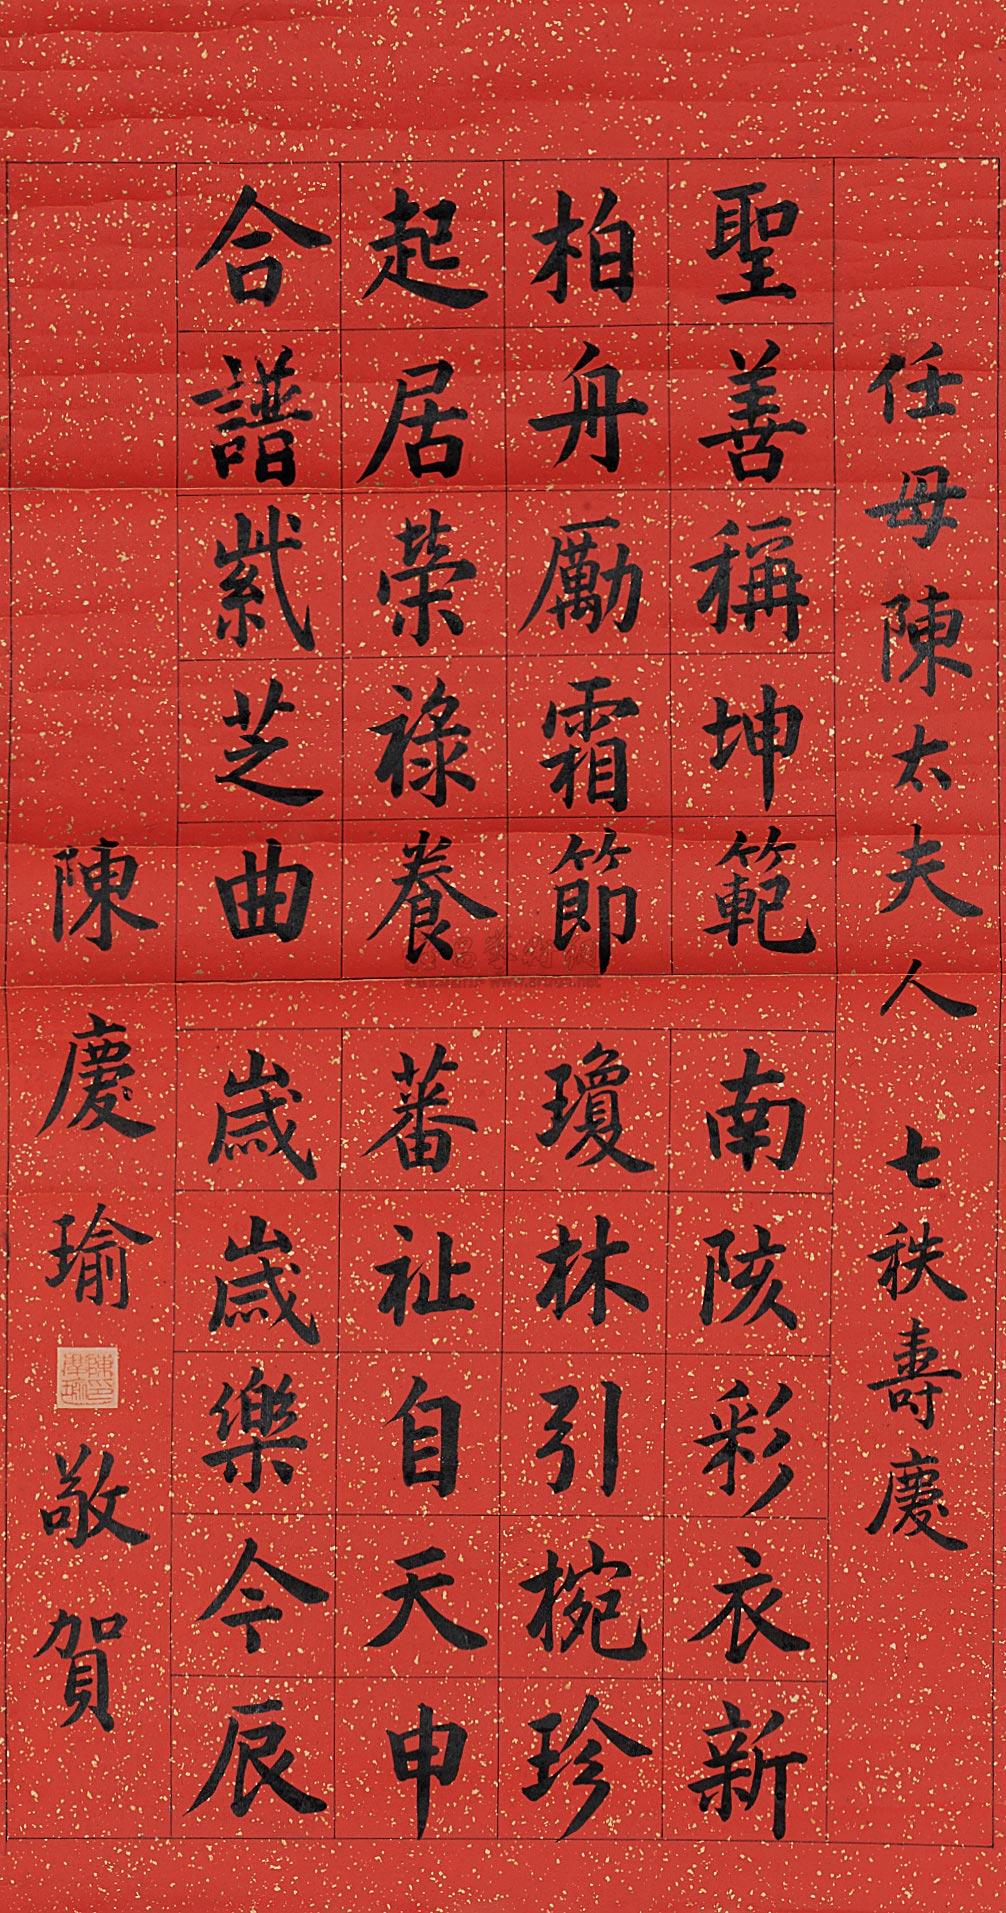 任母陳太夫人 七秩壽慶
聖善稱坤範 南陔彩衣新
柏舟勵霜節 瓊林引椀珍
起居榮祿養 蕃祉自天申
合譜紫芝曲 歲歲樂今辰
陳慶瑜 敬賀